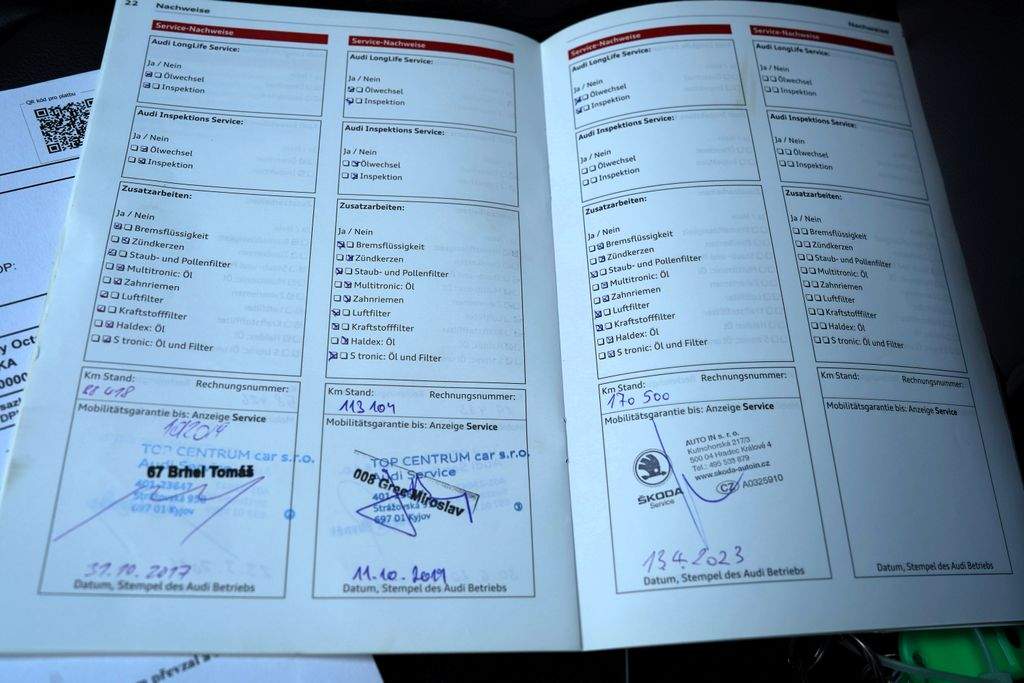 22 Nachweise
Service-Nachweise
Audi LongLife Service:
Ja / Nein
Ölwechsel
Inspektion
Audi Inspektions Service:
Ja / Nein
Ölwechsel
Inspektion
Zusatzarbeiten:
Ja / Nein
Bremsflüssigkeit
Zündkerzen
Staub- und Pollenfilter
Multitronic: Öl
Zahnriemen
Luftfilter
Kraftstofffilter
Haldex: Öl
S tronic: Öl und Filter
Km Stand: Rechnungsnummer:
Mobilitätsgarantie bis: Anzeige Service
TOP CENTRUM car s.r.o.
67 Brhel Tomáš
697 01 Kyjov
31.10.2017
Datum, Stempel des Audi Betriebs
Service-Nachweise
Audi LongLife Service:
Ja / Nein
Ölwechsel
Inspektion
Audi Inspektions Service:
Ja / Nein
Ölwechsel
Inspektion
Zusatzarbeiten:
Ja / Nein
Bremsflüssigkeit
Zündkerzen
Staub- und Pollenfilter
Multitronic: Öl
Zahnriemen
Luftfilter
Kraftstofffilter
Haldex: Öl
S tronic: Öl und Filter
Km Stand: Rechnungsnummer:
113 104
Mobilitätsgarantie bis: Anzeige Service
TOP CENTRUM car s.r.o.
Audi Service
008 Grec Miroslav
697 01 Kyjov
11.10.2019
Datum, Stempel des Audi Betriebs
Nachweise
Service-Nachweise
Audi LongLife Service:
Ja / Nein
Ölwechsel
Inspektion
Audi Inspektions Service:
Ja / Nein
Ölwechsel
Inspektion
Zusatzarbeiten:
Ja / Nein
Bremsflüssigkeit
Zündkerzen
Staub- und Pollenfilter
Multitronic: Öl
Zahnriemen
Luftfilter
Kraftstofffilter
Haldex: Öl
S tronic: Öl und Filter
Km Stand: Rechnungsnummer:
170 500
Mobilitätsgarantie bis: Anzeige Service
AUTO IN s. r. o.
Kutnohorská 217/3
500 04 Hradec Králové 4
Tel.: 495 538 879
www.skoda-autoin.cz
CZ A0325910
ŠKODA
Service
13.4.2023
Datum, Stempel des Audi Betriebs
Service-Nachweise
Audi LongLife Service:
Ja / Nein
Ölwechsel
Inspektion
Audi Inspektions Service:
Ja / Nein
Ölwechsel
Inspektion
Zusatzarbeiten:
Ja / Nein
Bremsflüssigkeit
Zündkerzen
Staub- und Pollenfilter
Multitronic: Öl
Zahnriemen
Luftfilter
Kraftstofffilter
Haldex: Öl
S tronic: Öl und Filter
Km Stand: Rechnungsnummer:
Mobilitätsgarantie bis: Anzeige Service
Datum, Stempel des Audi Betriebs
QR kód pro platbu